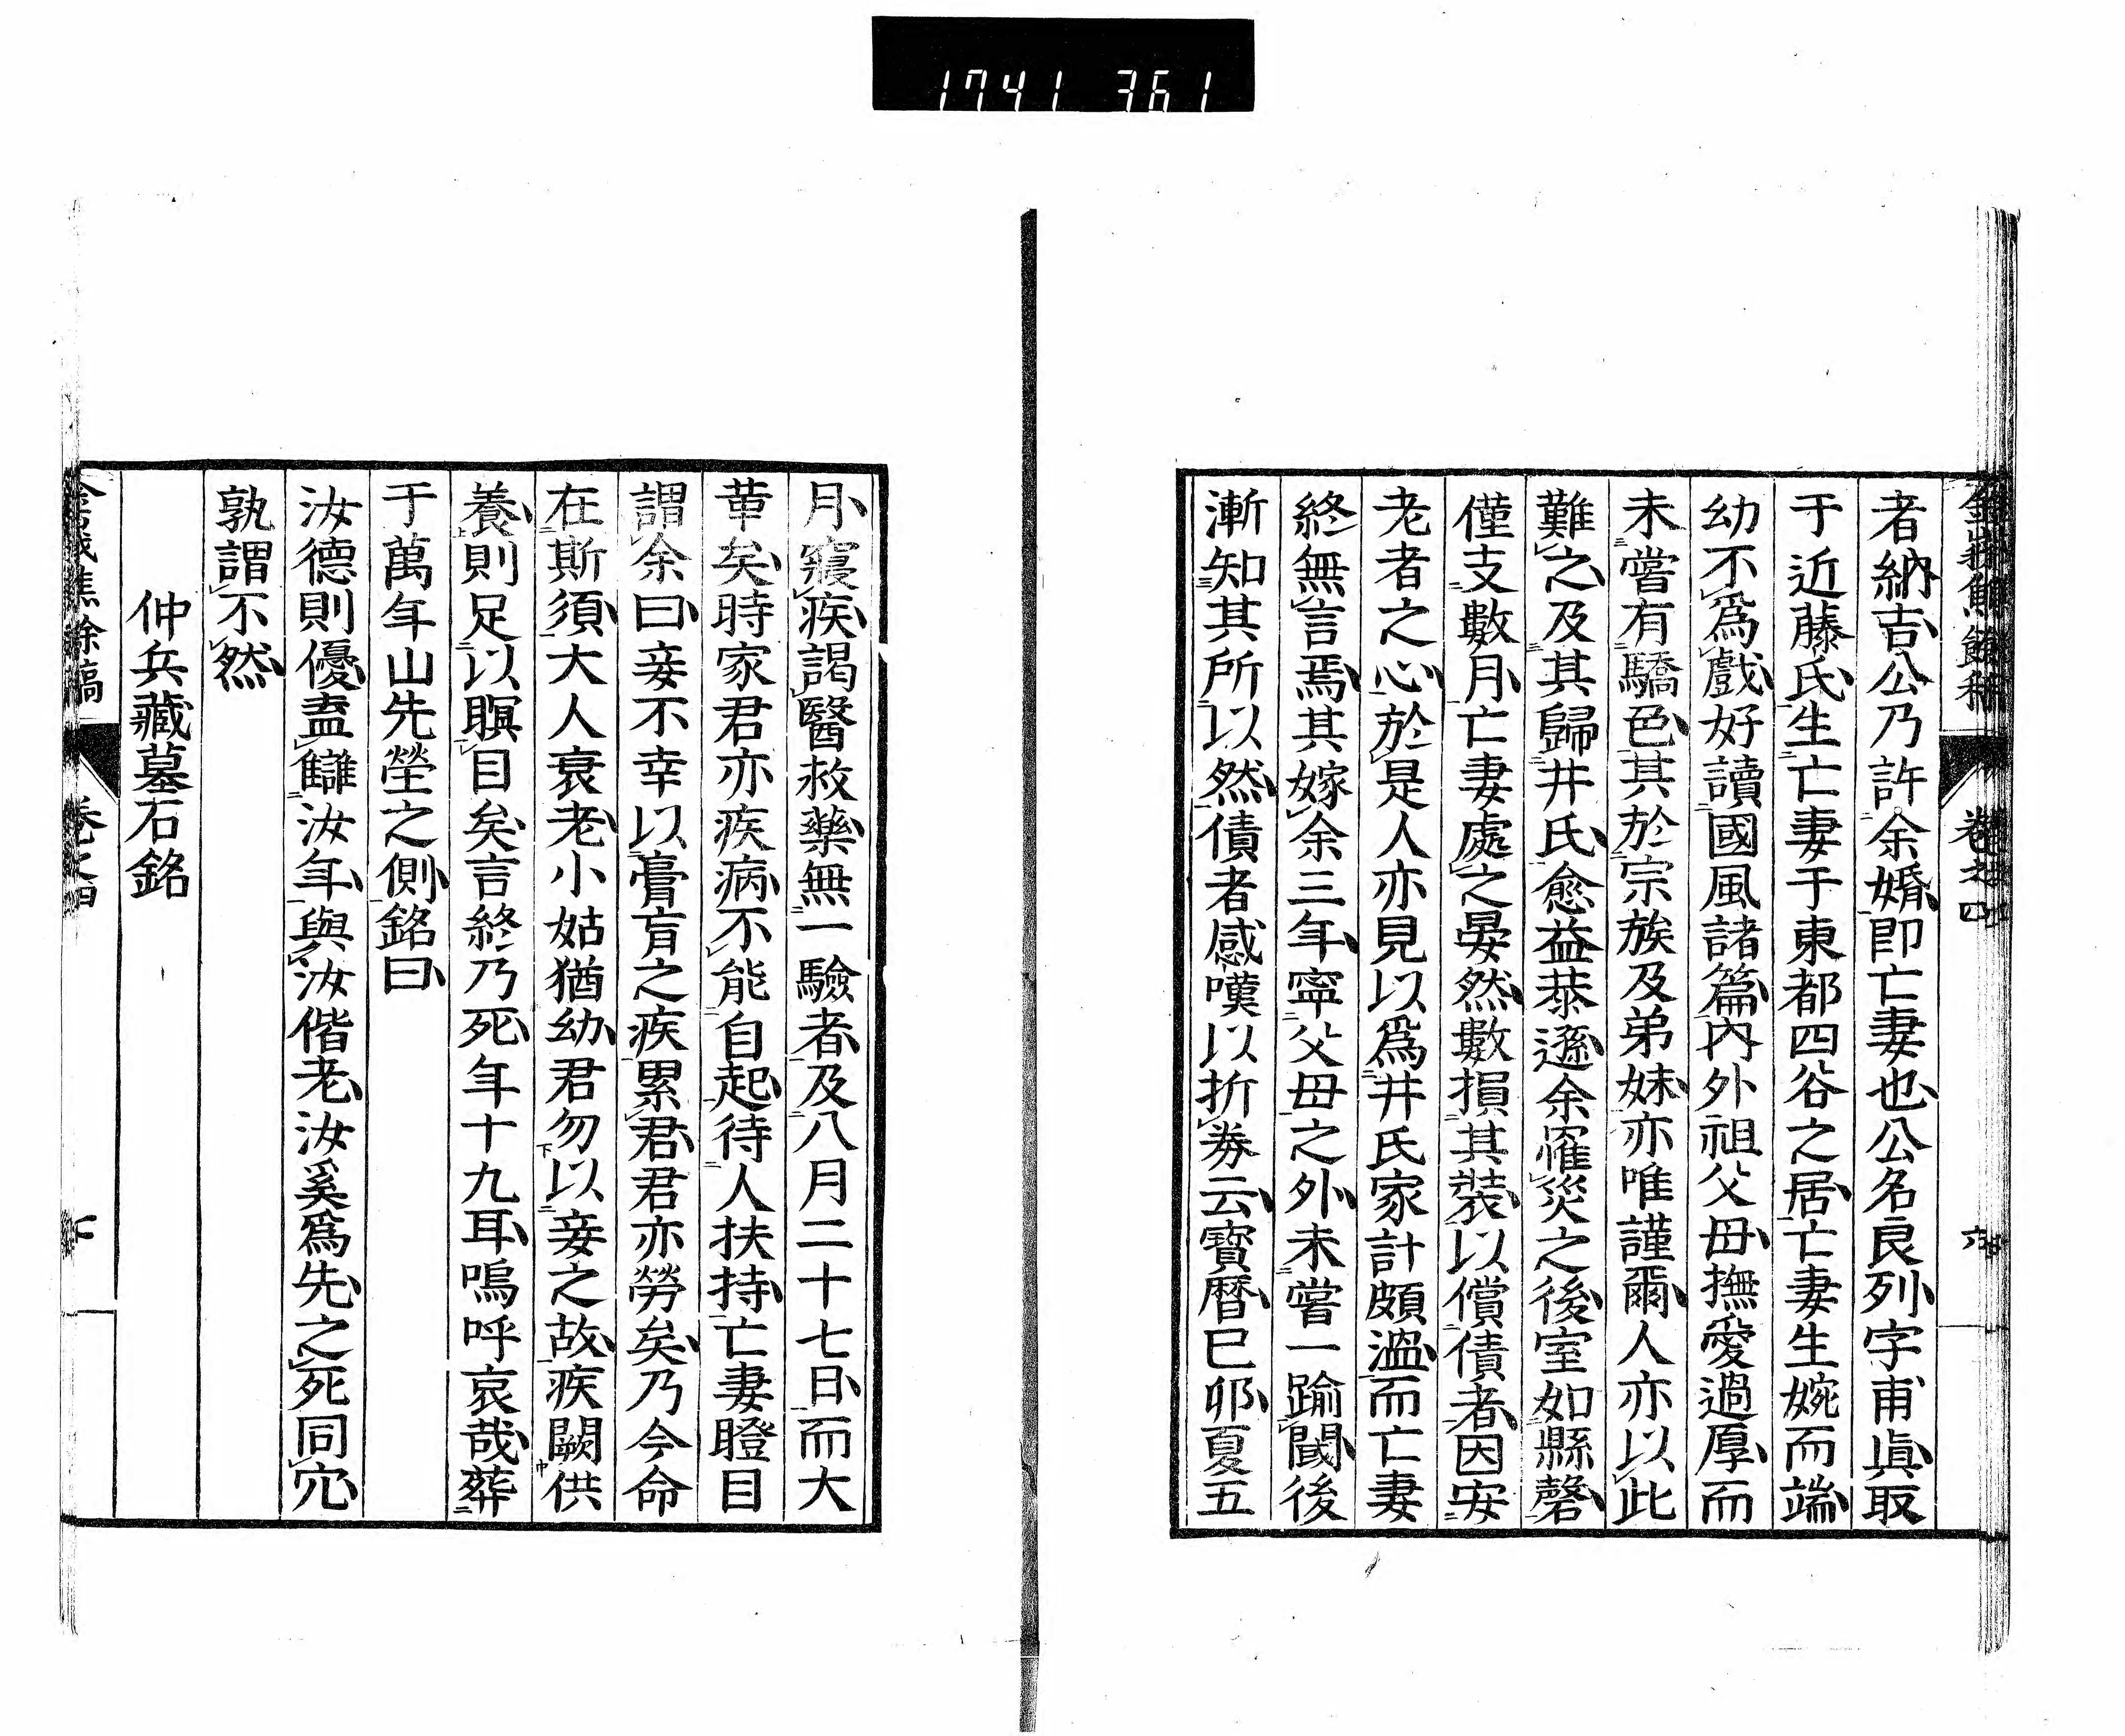 1741 361
者納吉公乃許余婚卽亡妻也公名良列字甫眞取
于近藤氏生亡妻于東都四谷之居亡妻生婉而端
幼不爲戲好讀國風諸篇內外祖父母撫愛過厚而
未嘗有驕色其於宗族及弟妹亦唯謹爾人亦以此
難之及其歸井氏愈益恭遜余罹災之後室如縣磬
僅支數月亡妻處之晏然數損其裝以償債者因安
老者之心於是人亦見以爲井氏家計頗溫而亡妻
終無言焉其嫁余三年寧父母之外未嘗一踰閾後
漸知其所以然債者感嘆以折券云寶曆巳卯夏五
月寢疾謁醫救藥無一驗者及八月二十七日而大
革矣時家君亦疾病不能自起待人扶持亡妻瞪目
謂余曰妾不幸以膏肓之疾累君君亦勞矣乃今命
在斯須大人衰老小姑猶幼君勿以妾之故疾闕供
養則足以瞑目矣言終乃死年十九耳嗚呼哀哉葬
于萬年山先塋之側銘曰
汝德則優盍讎汝年與汝偕老汝奚爲先之死同穴
孰謂不然
仲兵藏墓石銘
焦餘稿
卷之四